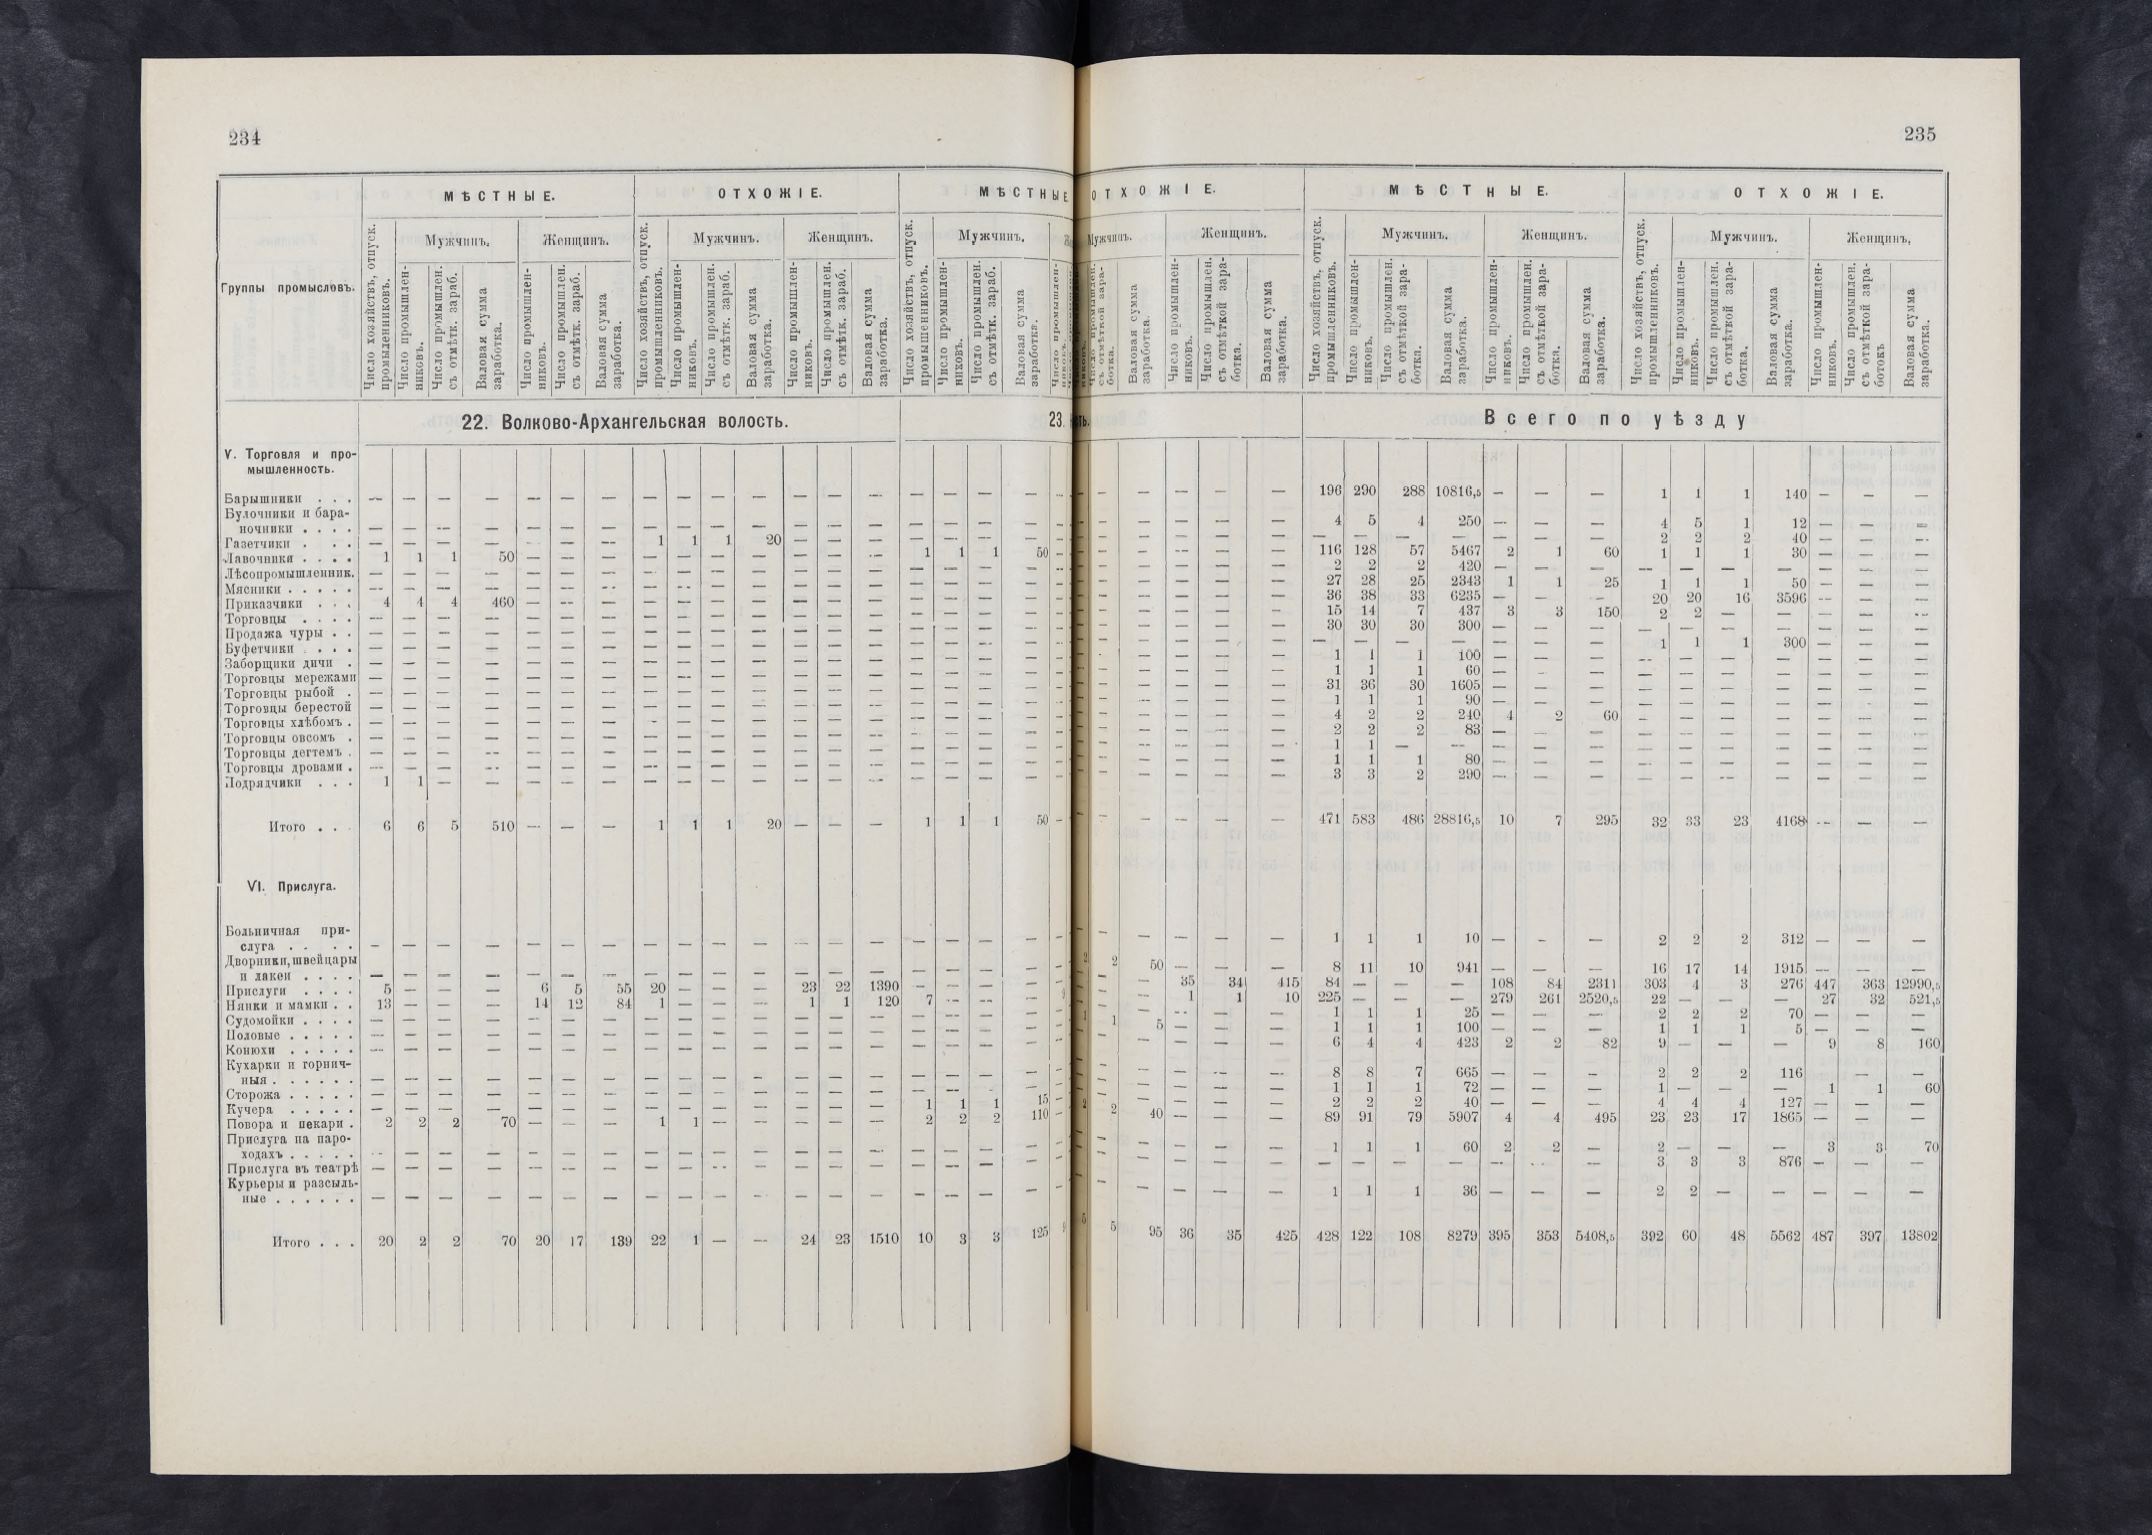 234
235
МѢСТНЫЕ. ОТХОЖІЕ. МѢСТНЫЕ ОТХОЖІЕ. МѢСТНЫЕ. ОТХОЖІЕ.
Группы промысловъ.
Мужчинъ. Женщинъ. Мужчинъ. Женщинъ. Мужчинъ. Мужчинъ. Женщинъ. Мужчинъ. Женщинъ. Мужчинъ. Женщинъ.
Число хозяйствъ, отпуск. промыленниковъ.
Число промышленниковъ.
Число промышлен. съ отмѣтк. зараб.
Валовая сумма заработка.
Число промышленниковъ.
Число промышлен. съ отмѣтк. зараб.
Валовая сумма заработка.
Число хозяйствъ, отпуск. промышленниковъ.
Число промышленниковъ.
Число промышлен. съ отмѣтк. зараб.
Валовая сумма заработка.
Число промышленниковъ.
Число промышлен. съ отмѣтк. зараб.
Валовая сумма заработка.
Число хозяйствъ, отпуск. промышленниковъ.
Число промышленниковъ.
Число промышлен. съ отмѣтк. зараб.
Валовая сумма заработка.
Валовая сумма заработка.
Число промышленниковъ.
Число промышлен. съ отмѣткой заработка.
Валовая сумма заработка.
Число хозяйствъ, отпуск. промышленниковъ.
Число промышленниковъ.
Число промышлен. съ отмѣткой заработка.
Валовая сумма заработка.
Число промышленниковъ.
Число промышлен. съ отмѣткой заработка.
Валовая сумма заработка.
Число хозяйствъ, отпуск. промышленниковъ.
Число промышленниковъ.
Число промышлен. съ отмѣткой заработка.
Валовая сумма заработка.
Число промышленниковъ.
Число промышлен. съ отмѣткой заработокъ
Валовая сумма заработка.
22. Волково-Архангельская волость. 23. Всего по уѣзду
V. Торговля и промышленность.
Барышники . . . — — — — — — — — — — — — — — — — — — — — — 196 290 288 10816,5 — — — 1 1 1 140 — — —
Булочники и бара-
ночники . . . . — — — — — — — — — — — — — — — — — — — — — 4 5 4 250 — — — 4 5 1 12 — — —
Газетчики . . . — — — — — — — 1 1 1 20 — — — — — — — — — — — — — — — — — 2 2 2 40 — — —
Лавочники . . . . 1 1 1 50 — — — — — — — — — — 1 1 1 50 — — — 116 128 57 5467 2 1 60 1 1 1 30 — — —
Лѣсопромышленник. — — — — — — — — — — — — — — — — — — — — — 2 2 2 420 — — — — — — — — — —
Мясники . . . . . — — — — — — — — — — — — — — — — — — — — — 27 28 25 2343 1 1 25 1 1 1 50 — — —
Приказчики . . . 4 4 4 460 — — — — — — — — — — — — — — — — — 36 38 33 6235 — — — 20 20 16 3596 — — —
Торговцы . . . . — — — — — — — — — — — — — — — — — — — — — 15 14 7 437 3 3 150 2 2 — — — — —
Продажа чуры . . — — — — — — — — — — — — — — — — — — — — — 30 30 30 300 — — — — — — — — — —
Буфетчики . . . — — — — — — — — — — — — — — — — — — — — — — — — — — — — 1 1 1 300 — — —
Заборщики дичи . — — — — — — — — — — — — — — — — — — — — — 1 1 1 100 — — — — — — — — — —
Торговцы мережами — — — — — — — — — — — — — — — — — — — — — 1 1 1 60 — — — — — — — — — —
Торговцы рыбой . — — — — — — — — — — — — — — — — — — — — — 31 36 30 1605 — — — — — — — — — —
Торговцы берестой — — — — — — — — — — — — — — — — — — — — — 1 1 1 90 — — — — — — — — — —
Торговцы хлѣбомъ . — — — — — — — — — — — — — — — — — — — — — 4 2 2 240 4 2 60 — — — — — — —
Торговцы овсомъ . — — — — — — — — — — — — — — — — — — — — — 2 2 2 83 — — — — — — — — — —
Торговцы дегтемъ . — — — — — — — — — — — — — — — — — — — — — 1 1 — — — — — — — — — — — —
Торговцы дровами . — — — — — — — — — — — — — — — — — — — — — 1 1 1 80 — — — — — — — — — —
Подрядчики . . . 1 1 — — — — — — — — — — — — — — — — — — — 3 3 2 290 — — — — — — — — — —
Итого . . . 6 6 5 510 — — — 1 1 1 20 — — — 1 1 1 50 — — — 471 583 486 28816,5 10 7 295 32 33 23 4168 — — —
VI. Прислуга.
Больничная при-
слуга . . . . — — — — — — — — — — — — — — — — — — — — — 1 1 1 10 — — — 2 2 2 312 — — —
Дворники, швейцары
и лакеи . . . . — — — — — — — — — — — — — — — — — — 2 2 50 — — — 8 11 10 941 — — — 16 17 14 1915 — — —
Прислуги . . . . 5 — — — 6 5 55 20 — — — 23 22 1390 — — — — — 35 34 415 84 — — — 108 84 2311 303 4 3 276 447 363 12990,5
Няньки и мамки . . 13 — — — 14 12 84 1 — — — 1 1 120 7 — — — — 1 1 10 225 — — — 279 261 2520,5 22 — — — 27 32 521,5
Судомойки . . . . — — — — — — — — — — — — — — — — — — 1 1 5 — — — 1 1 1 25 — — — 2 2 2 70 — — —
Половые . . . . . — — — — — — — — — — — — — — — — — — — — — 1 1 1 100 — — — 1 1 1 5 — — —
Конюхи . . . . . — — — — — — — — — — — — — — — — — — — — — 6 4 4 423 2 2 82 9 — — — 9 8 160
Кухарки и горнич-
ныя . . . . . . — — — — — — — — — — — — — — — — — — — — — 8 8 7 665 — — — 2 2 2 116 — —
Сторожа . . . . . — — — — — — — — — — — — — — — — — — — — — 1 1 1 72 — — — 1 — — — 1 1 60
Кучера . . . . . — — — — — — — — — — — — — — 1 1 1 15 — — — 2 2 2 40 — — — 4 4 4 127 — — —
Повора и пекари . 2 2 2 70 — — — 1 1 — — — — — 2 2 2 110 2 2 40 — — — 89 91 79 5907 4 4 495 23 23 17 1865 — — —
Прислуга на паро-
ходахъ . . . . . — — — — — — — — — — — — — — — — — — — — — 1 1 1 60 2 2 — 2 — — — 3 3 70
Прислуга въ театрѣ — — — — — — — — — — — — — — — — — — — — — — — — — — — — 3 3 3 876 — — —
Курьеры и разсыль-
ные . . . . . . — — — — — — — — — — — — — — — — — — — — — 1 1 1 36 — — — 2 2 — — — — —
Итого . . . 20 2 2 70 20 17 139 22 1 — — 24 23 1510 10 3 3 125 5 5 95 36 35 425 428 122 108 8279 395 353 5408,5 392 60 48 5562 487 397 13802